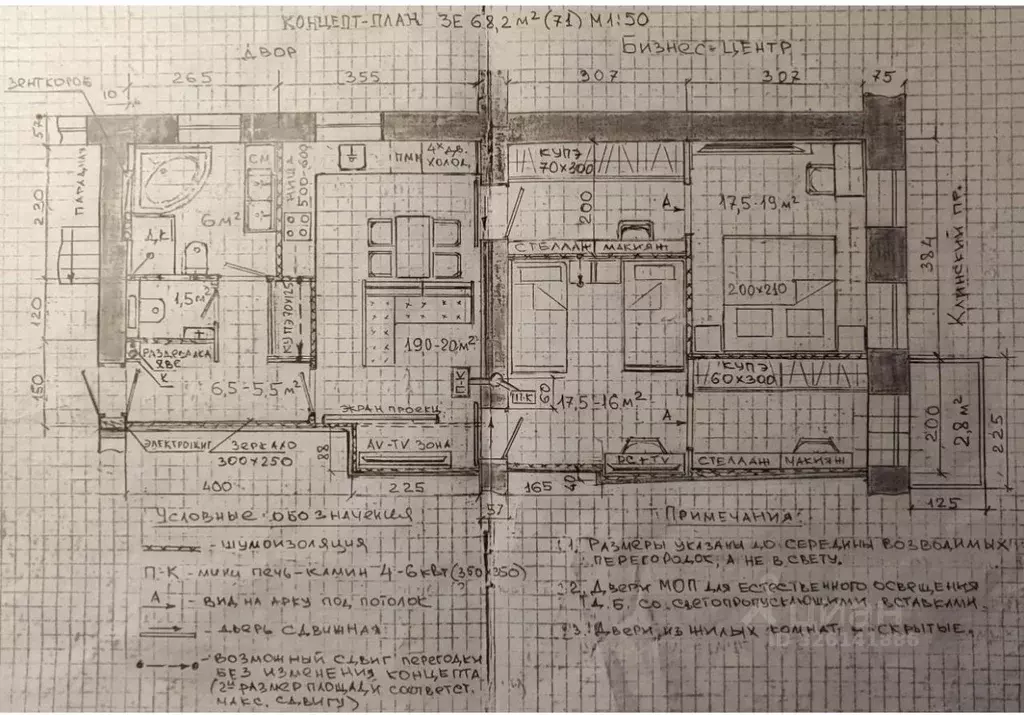 КОНЦЕПТ-ПЛАН 3Е 68,2 м² (71) М1:50
ДВОР
БИЗНЕС-ЦЕНТР
ЗЕНТКОРОБ
10
265
355
307
307
75
57
ПАРАДНАЯ
220
120
150
СМ
6 м²
Д.К
НИША
500-600
ПММ
4х ДВ.
ХОЛОД.
КУПЭ
70х300
200
А
17,5-19 м²
СТЕЛЛАЖ МАКИЯЖ
200х210
384
КЛИНСКИЙ ПР.
1,5 м²
КУПЭ 70х125
190-20 м²
РАЗДЕВАЛКА
ХВС
К
6,5-5,5 м²
П-К
П-К
60
17,5-16 м²
А
КУПЭ
60х300
200
2,8 м²
225
125
ЭКРАН ПРОЕКЦ
AV-TV ЗОНА
ЭЛЕКТРОЩИТ
ЗЕРКАЛО
300х250
88
400
225
57
165
40
PC+TV
СТЕЛЛАЖ МАКИЯЖ
УСЛОВНЫЕ ОБОЗНАЧЕНИЯ
- ШУМОИЗОЛЯЦИЯ
П-К - МИНИ ПЕЧЬ-КАМИН 4-6 КВТ (350х350)
А - ВИД НА АРКУ ПОД ПОТОЛОК
- ДВЕРЬ СДВИЖНАЯ
- ВОЗМОЖНЫЙ СДВИГ ПЕРЕГОДКИ
БЕЗ ИЗМЕНЕНИЯ КОНЦЕПТА
(2й РАЗМЕР ПЛОЩАДИ СООТВЕТСТ.
МАКС. СДВИГУ)
ПРИМЕЧАНИЯ:
1. РАЗМЕРЫ УКАЗАНЫ ДО СЕРЕДИНЫ ВОЗВОДИМЫХ
ПЕРЕГОРОДОК, А НЕ В СВЕТУ.
2. ДВЕРИ МОП ДЛЯ ЕСТЕСТВЕННОГО ОСВЕЩЕНИЯ
Д.Б. СО СВЕТОПРОПУСКАЮЩИМИ ВСТАВКАМИ.
3. ДВЕРИ ИЗ ЖИЛЫХ КОМНАТ - СКРЫТЫЕ.